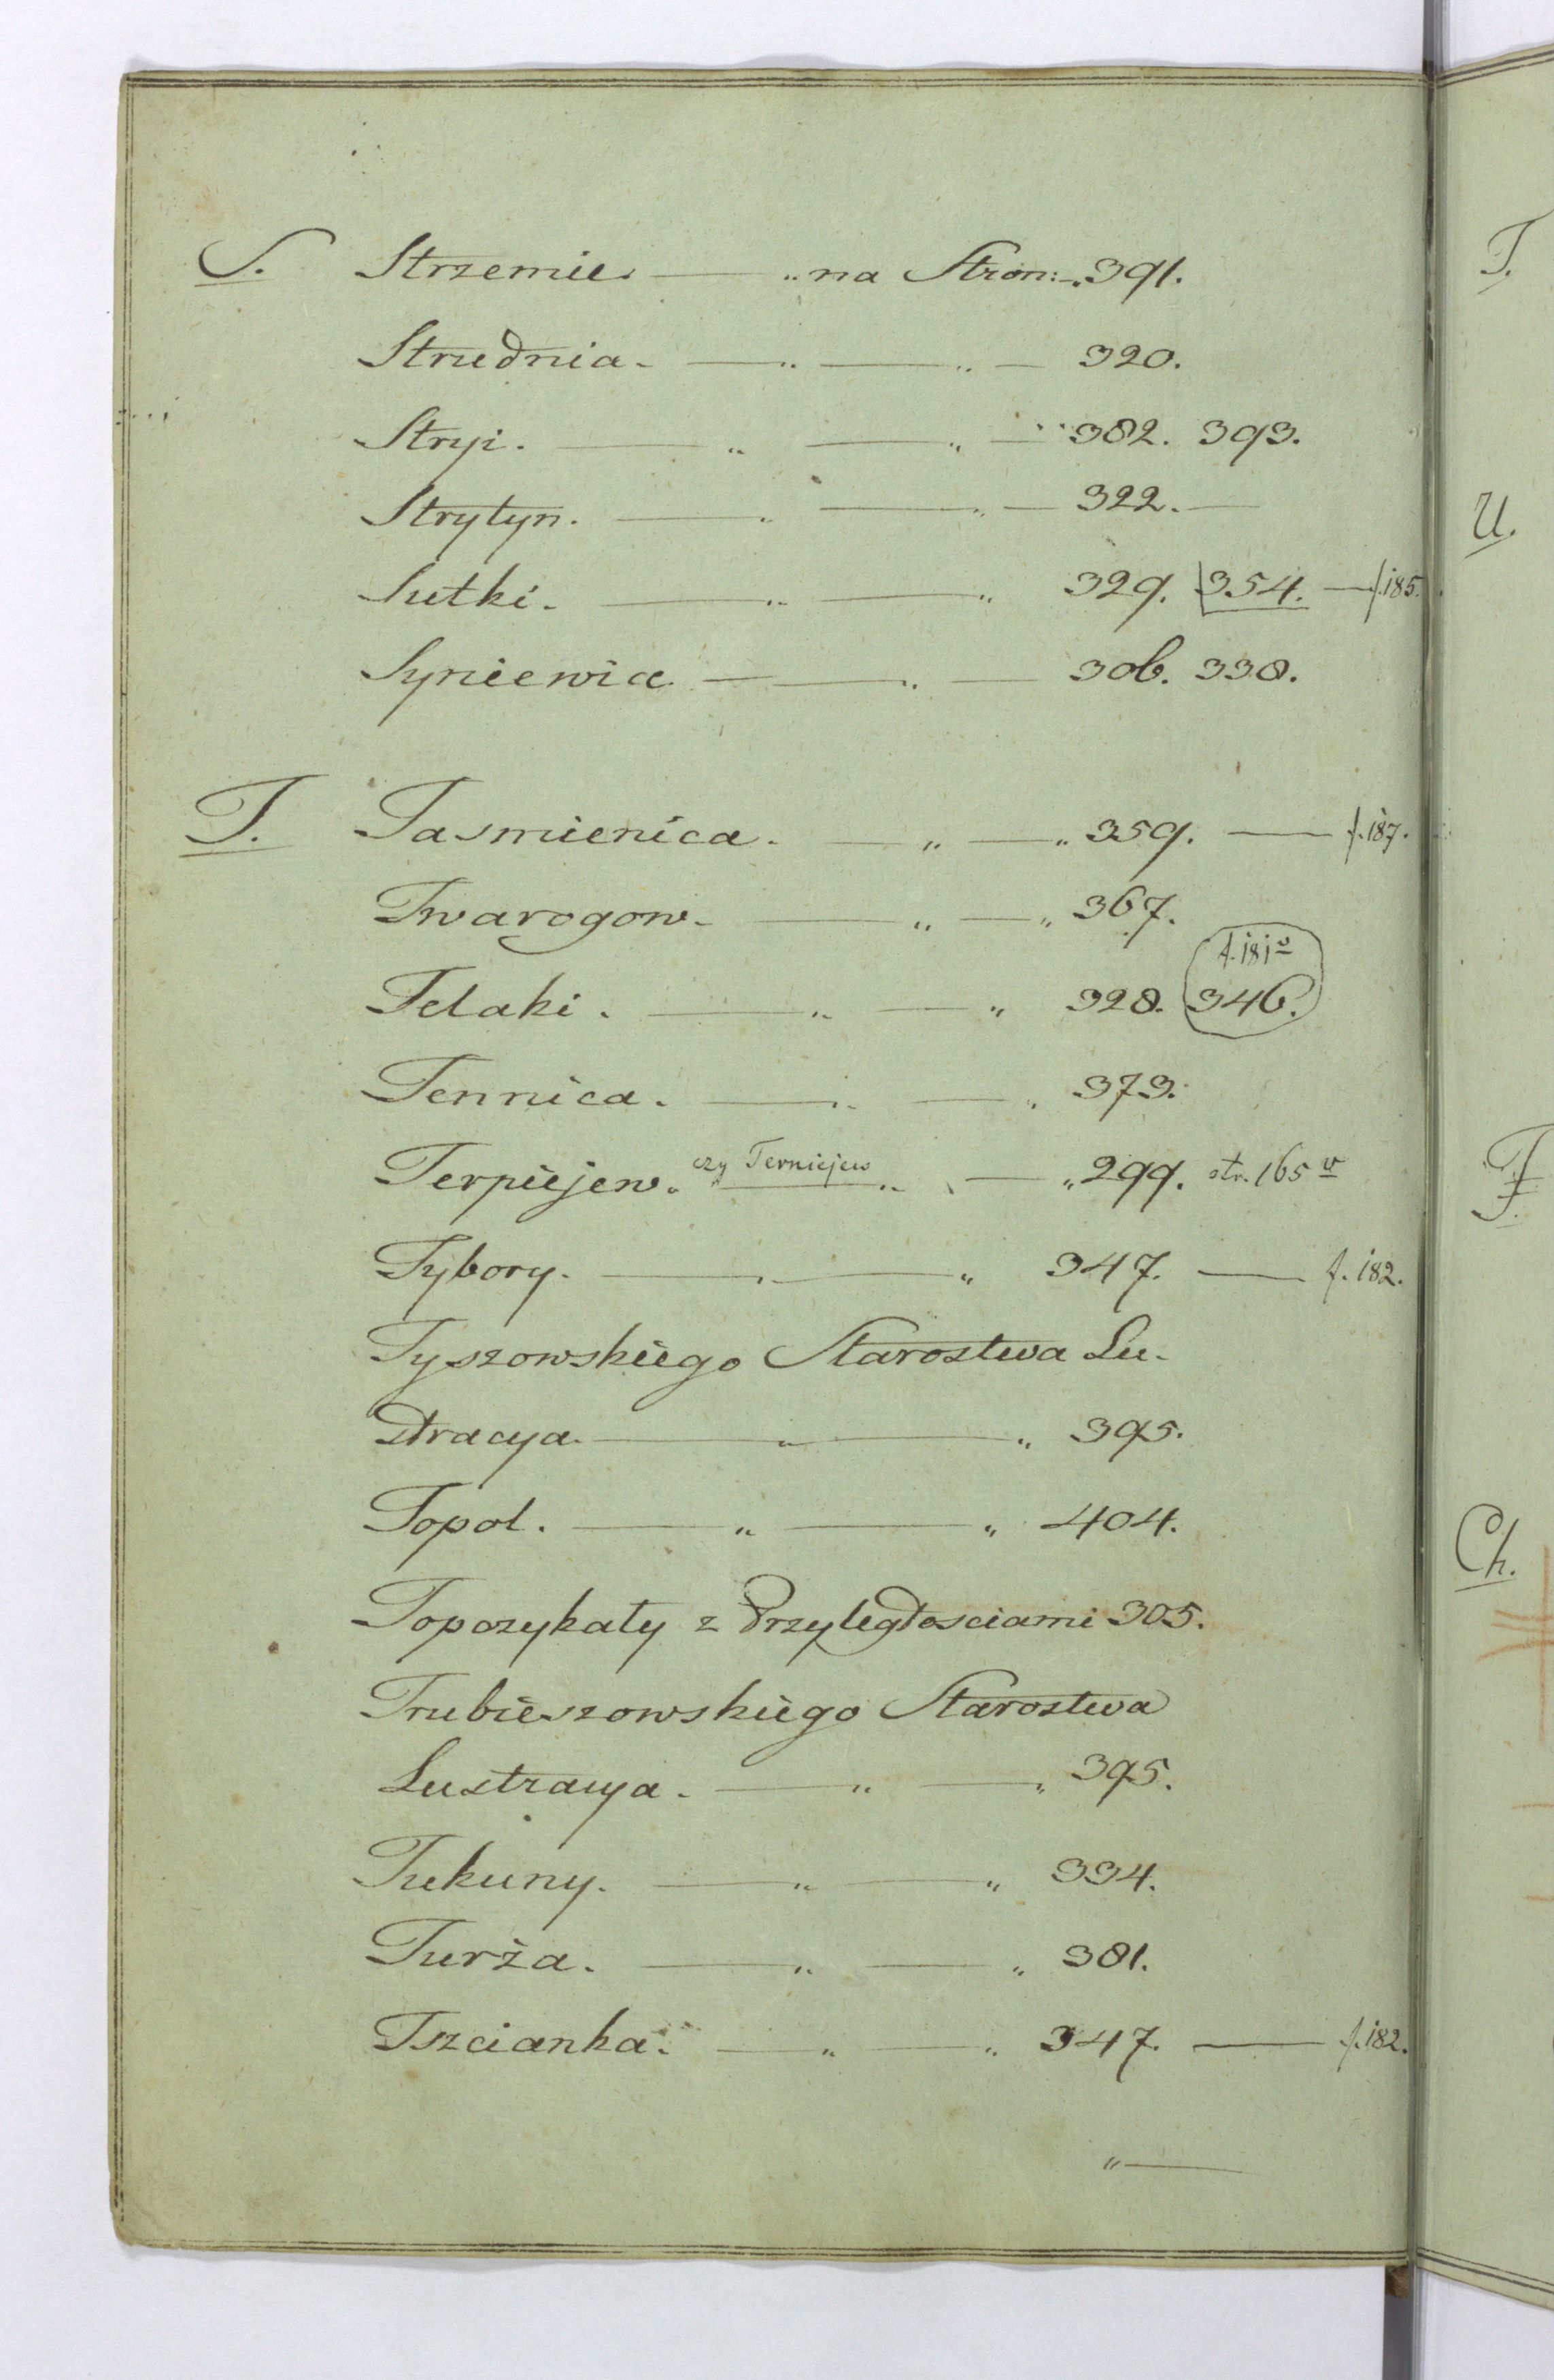 S. Strzemie. — „ na Stron: „ 391.
Strudnia. — „ — „ — 320.
Stryi. — „ — „ — 382. 393.
Strytyn. — „ — „ — 322. —
Sutki. — „ — „ 329. 354. — f. 185.
Syniewica. — — „ — 306. 338.
T. Tasmienica. — „ — „ 359. — f. 187.
Twarogow. — „ — „ 367.
f. 181v
Telaki. — „ — „ 328. 346.
Tennica. — „ — „ 373.
Terpiejew. czy Terniejew „ — „ 299. str. 165v
Tybory. — „ — „ 347. — f. 182.
Tyszowskiego Starostwa Lu-
stracya. — „ — „ 395.
Topol. — „ — „ 404.
Toporzykały z Przyległosciami 305.
Trubieszowskiego Starostwa
Lustracya. — „ — „ 395.
Tukuny. — „ — „ 334.
Turża. — „ — „ 381.
Tszcianka. — „ — „ 347. — f. 182.
„ —
T.
U.
F.
Ch.